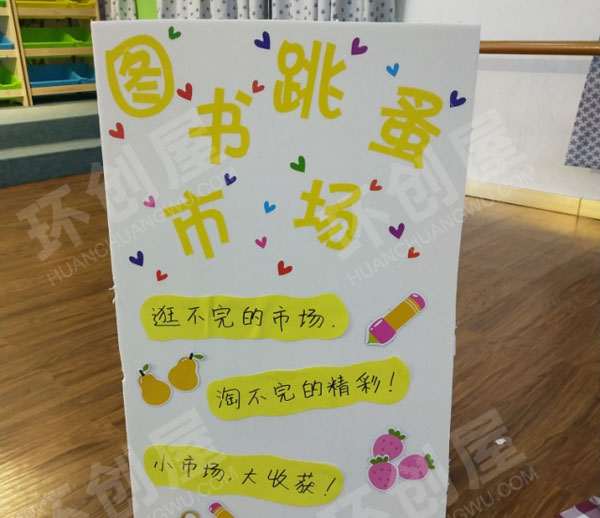 图书跳蚤
市场
逛不完的市场.
淘不完的精彩！
小市场.大收获！
环创屋
HUANCHUANGWU.COM
环创屋
HUANCHUANGWU.COM
环创屋
环创屋
HUANCHUANGWU.COM